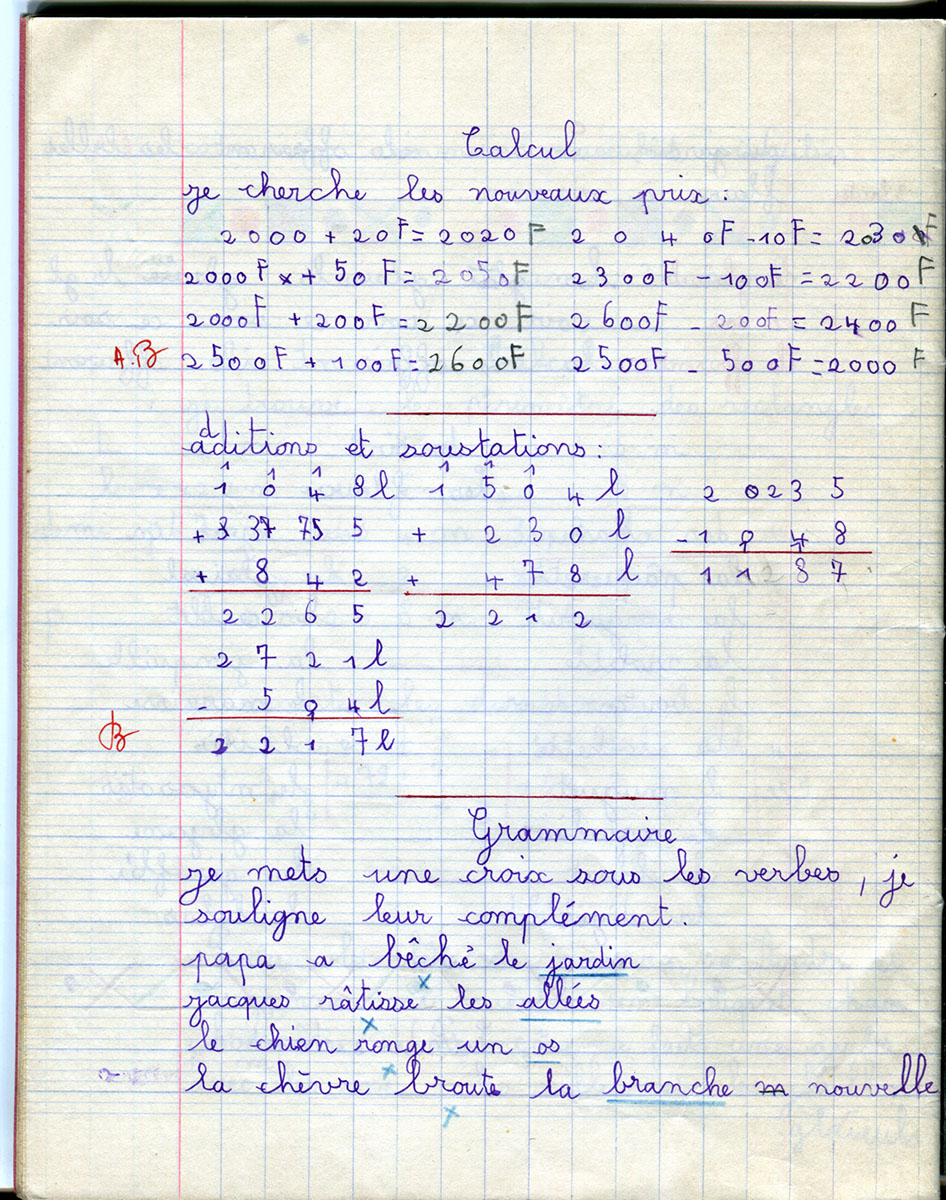 Calcul
je cherche les nouveaux prix :
2000 + 20F = 2020F 2040F - 10F = 2030F
2000F + 50F = 2050F 2300F - 100F = 2200F
2000F + 200F = 2200F 2600F - 200F = 2400F
A.B 2500F + 100F = 2600F 2500F - 500F = 2000F
additions et soustations :
1 1 1 1 1 1
1 0 4 8 l 1 5 0 4 l 2 0 2 3 5
+ 3 7 5 + 2 3 0 l - 1 0 4 8
+ 8 4 2 + 4 7 8 l 1 1 8 7
2 2 6 5 2 2 1 2
2 7 2 1 l
- 5 0 4 l
B 2 2 1 7 l
Grammaire
je mets une croix sous les verbes, je
souligne leur complément.
papa a bêché le jardin
x
jacques râtisse les allées
x
le chien ronge un os
x
la chèvre broute la branche nouvelle
x